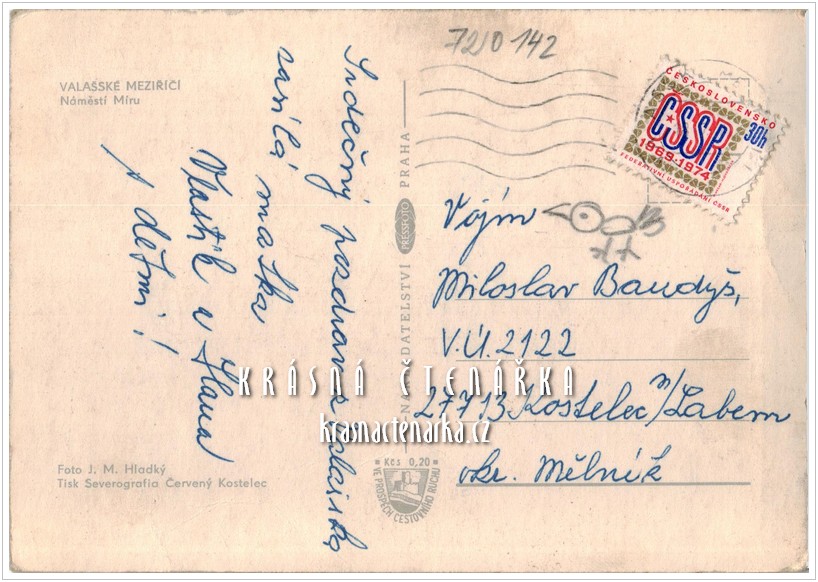 VALAŠSKÉ MEZIŘÍČÍ
Náměstí Míru
Srdečný pozdrav z Valašska
zasílá matka
Vlastík a Hana
s dětmi!
Foto J. M. Hladký
Tisk Severografia Červený Kostelec
NAKLADATELSTVÍ PRESSFOTO PRAHA
Kčs 0,20
VE PROSPĚCH CESTOVNÍHO RUCHU
7210 142
ČESKOSLOVENSKO
30h
ČSSR
1969-1974
FEDERATIVNÍ USPOŘÁDÁNÍ ČSSR
Vojín
Miloslav Baudyš,
V.Ú. 2122
27713 Kostelec n/Labem
okr. Mělník
KRÁSNÁ ČTENÁŘKA
krasnactenarka.cz